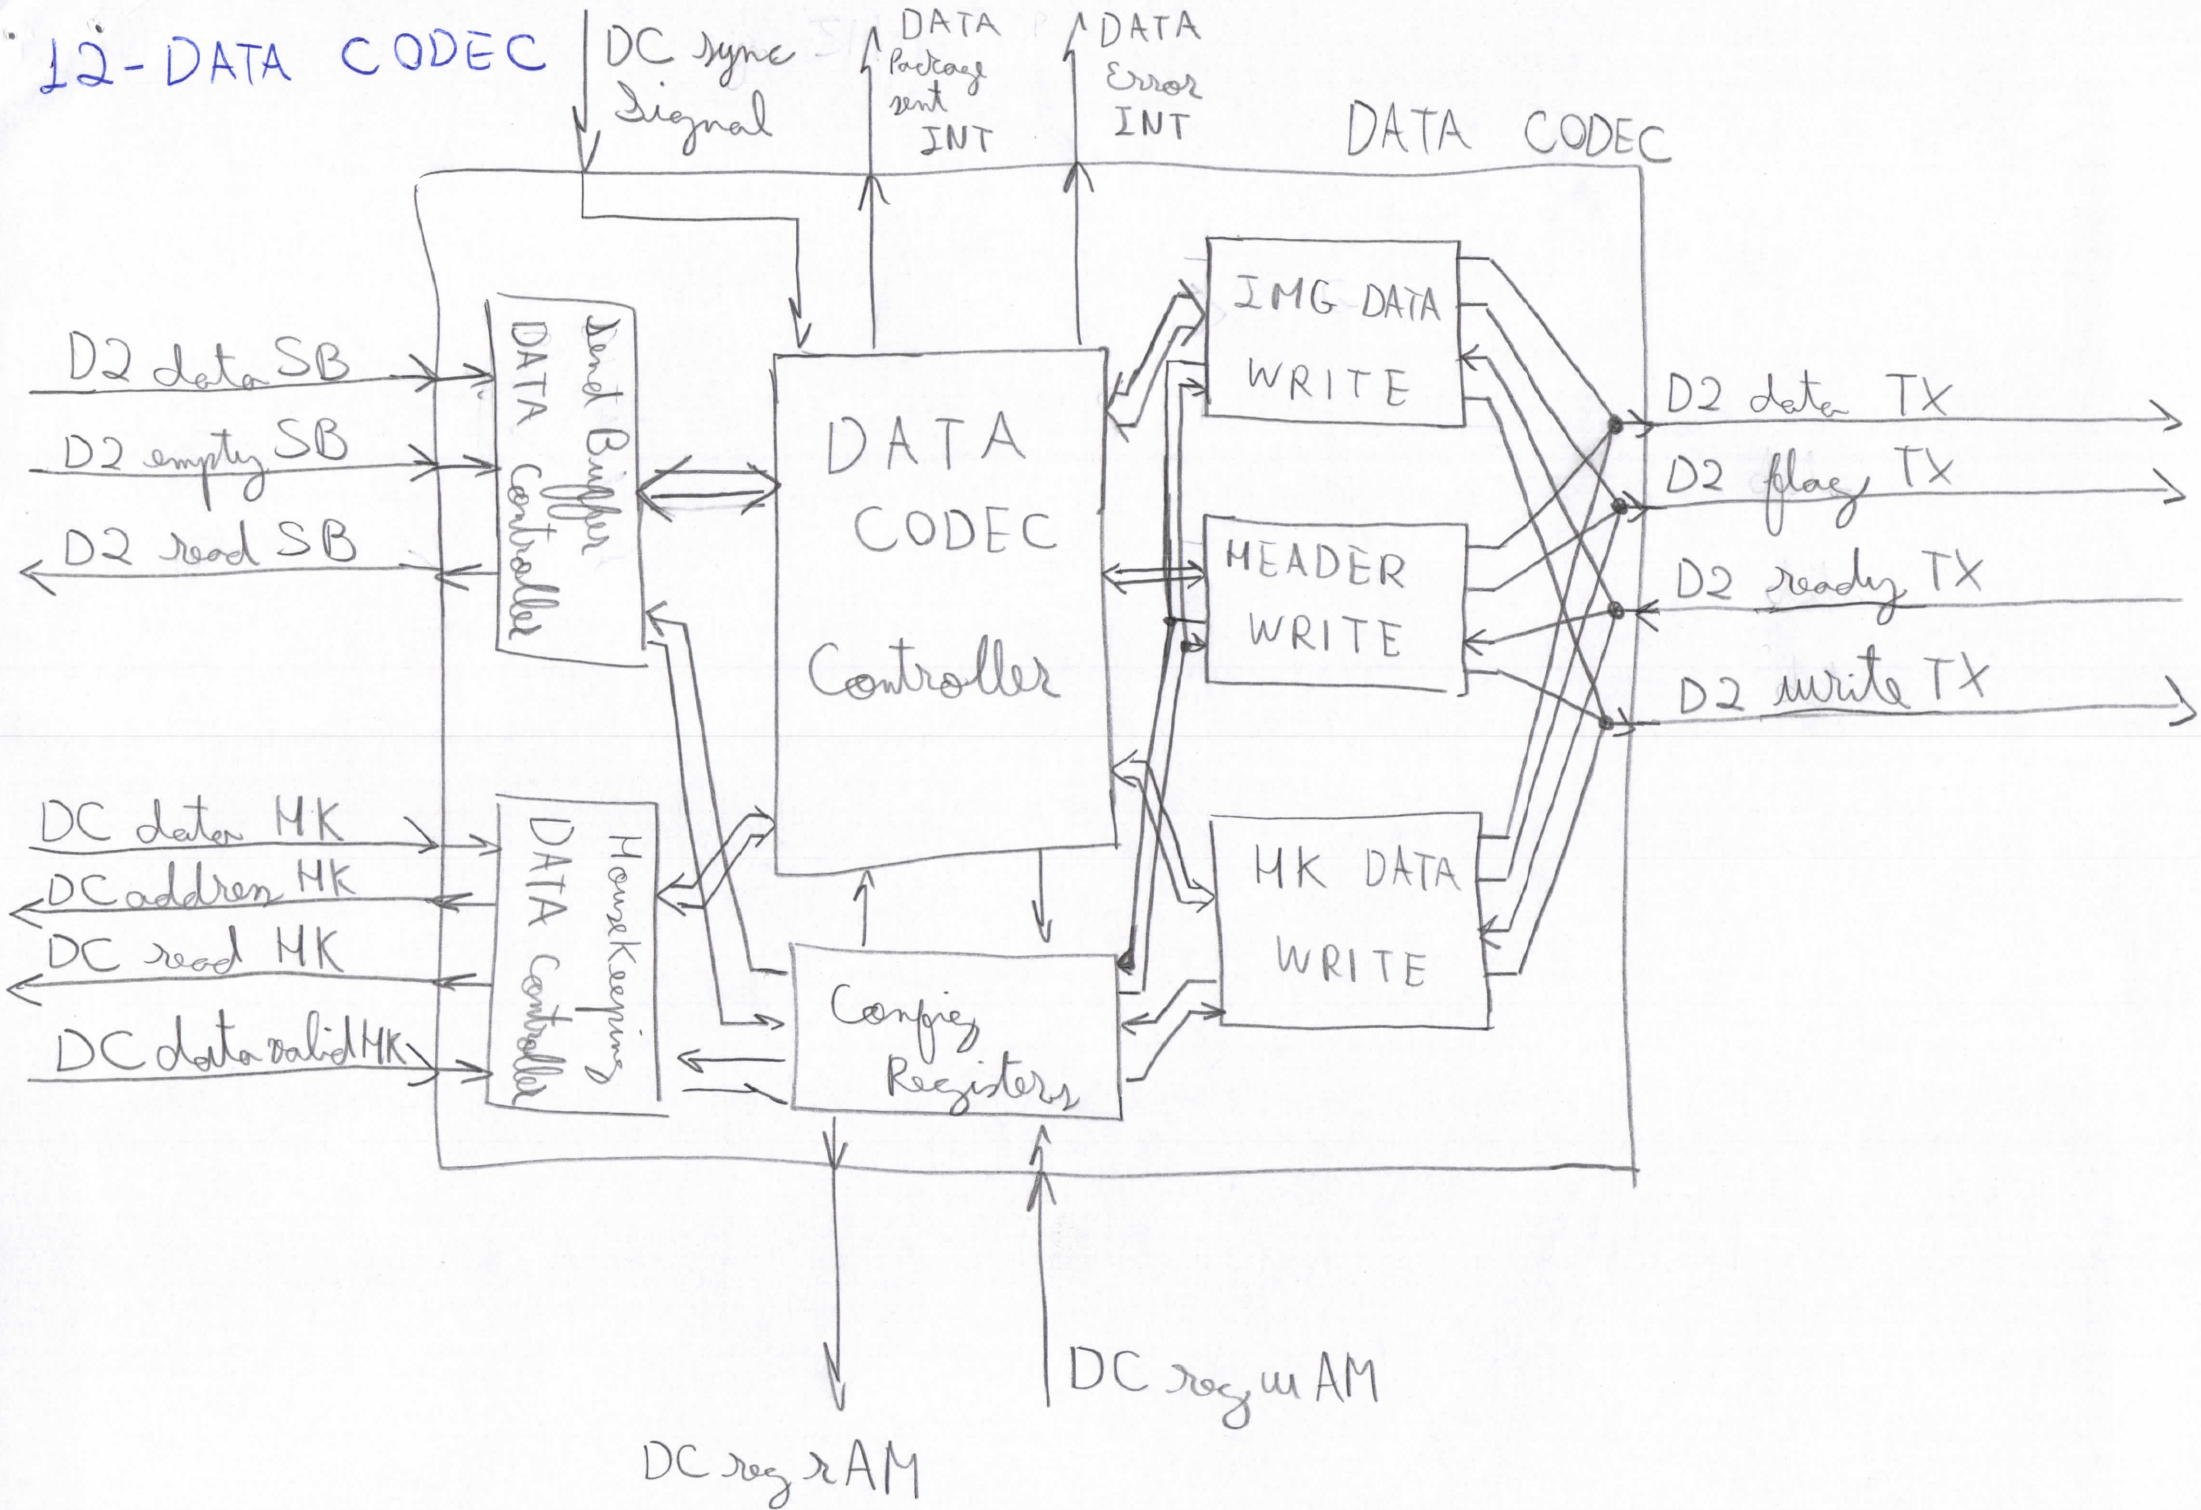 12-DATA CODEC
DC sync
Signal
DATA
Package
sent
INT
DATA
Error
INT
DATA CODEC
D2 data SB
D2 empty SB
D2 read SB
Send Buffer
DATA Controller
DATA
CODEC
Controller
IMG DATA
WRITE
HEADER
WRITE
HK DATA
WRITE
D2 data TX
D2 flag TX
D2 ready TX
D2 write TX
DC data HK
DC address HK
DC read HK
DC data valid HK
HouseKeeping
DATA Controller
Config
Registers
DC reg w AM
DC reg r AM